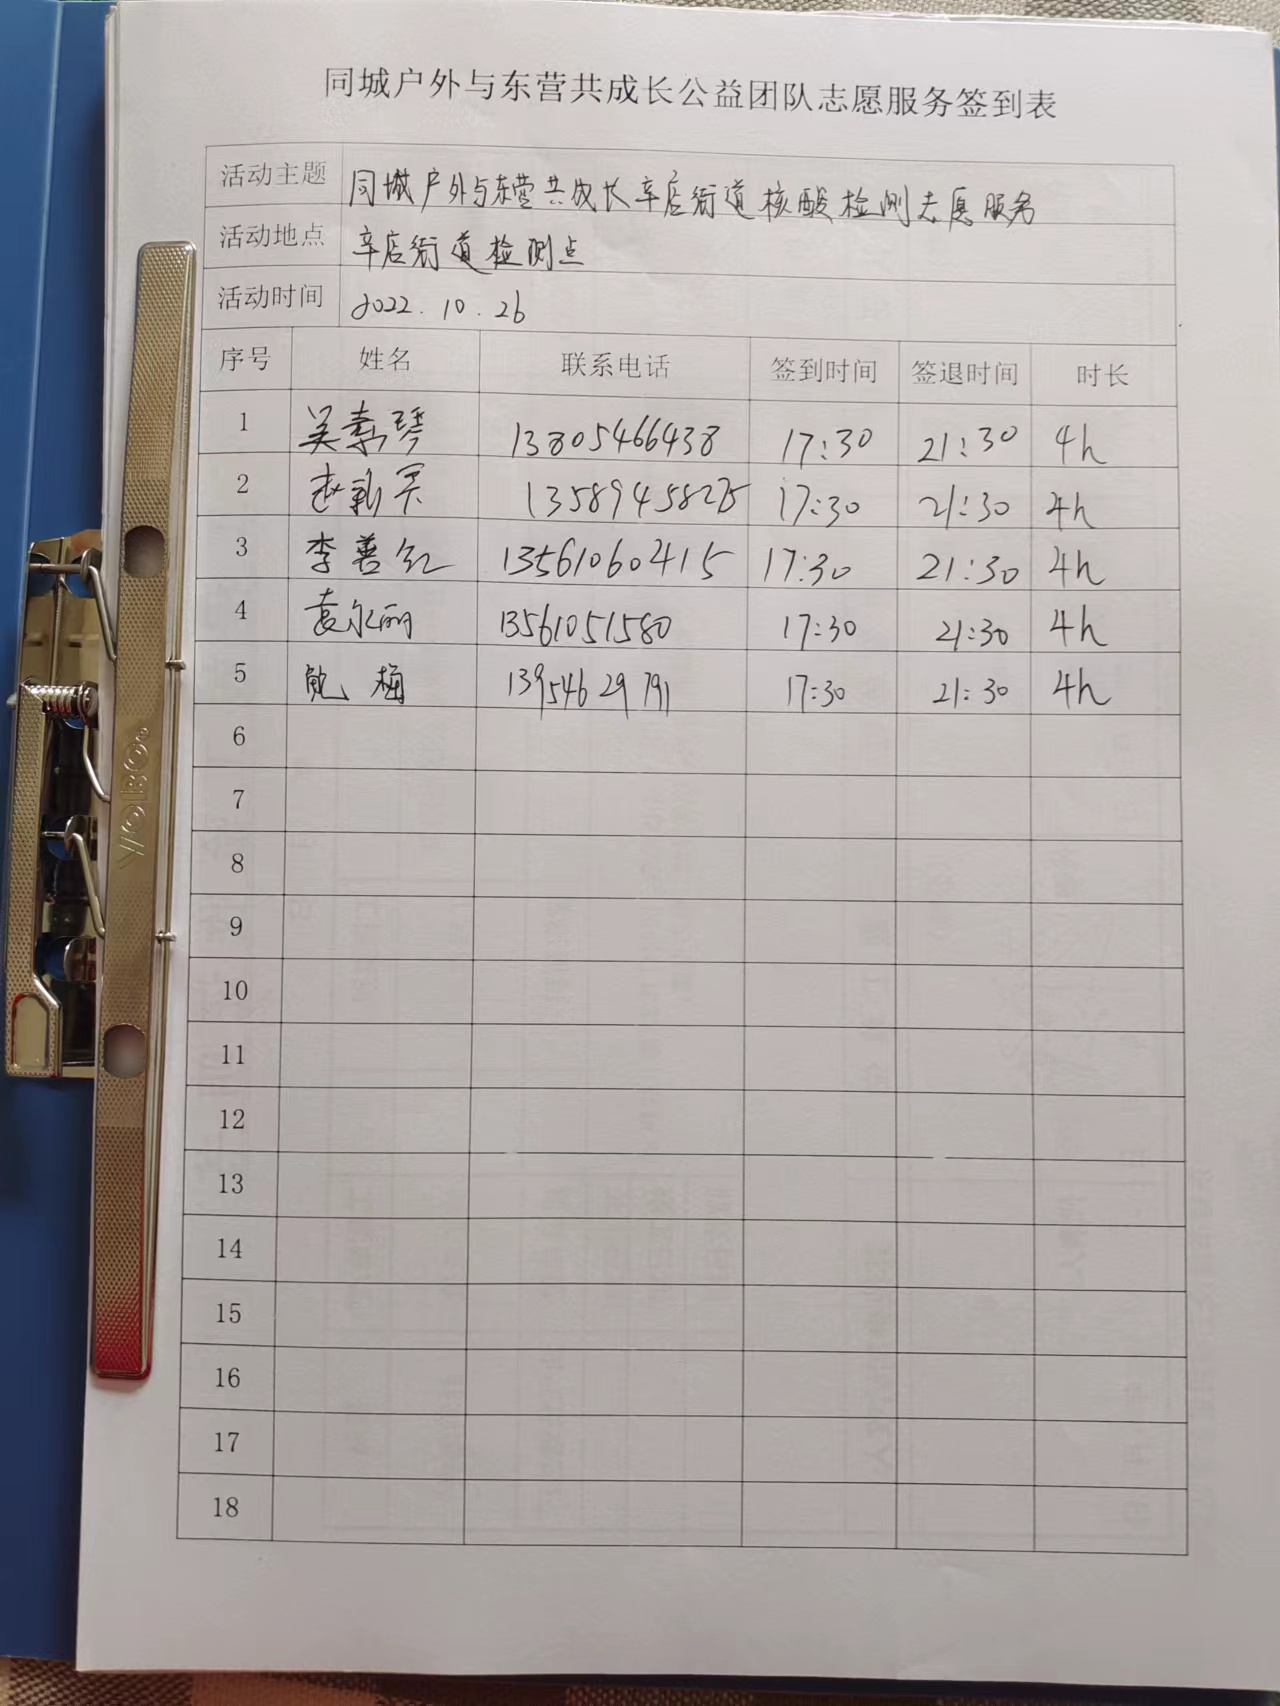 同城户外与东营共成长公益团队志愿服务签到表
活动主题 同城户外与东营共成长辛店街道核酸检测志愿服务
活动地点 辛店街道检测点
活动时间 2022.10.26
序号 姓名 联系电话 签到时间 签退时间 时长
1 吴秀琴 13805466438 17:30 21:30 4h
2 赵新军 13589458275 17:30 21:30 4h
3 李善红 13561060415 17:30 21:30 4h
4 袁永丽 13561051580 17:30 21:30 4h
5 鲍梅 13954629791 17:30 21:30 4h
6
7
8
9
10
11
12
13
14
15
16
17
18